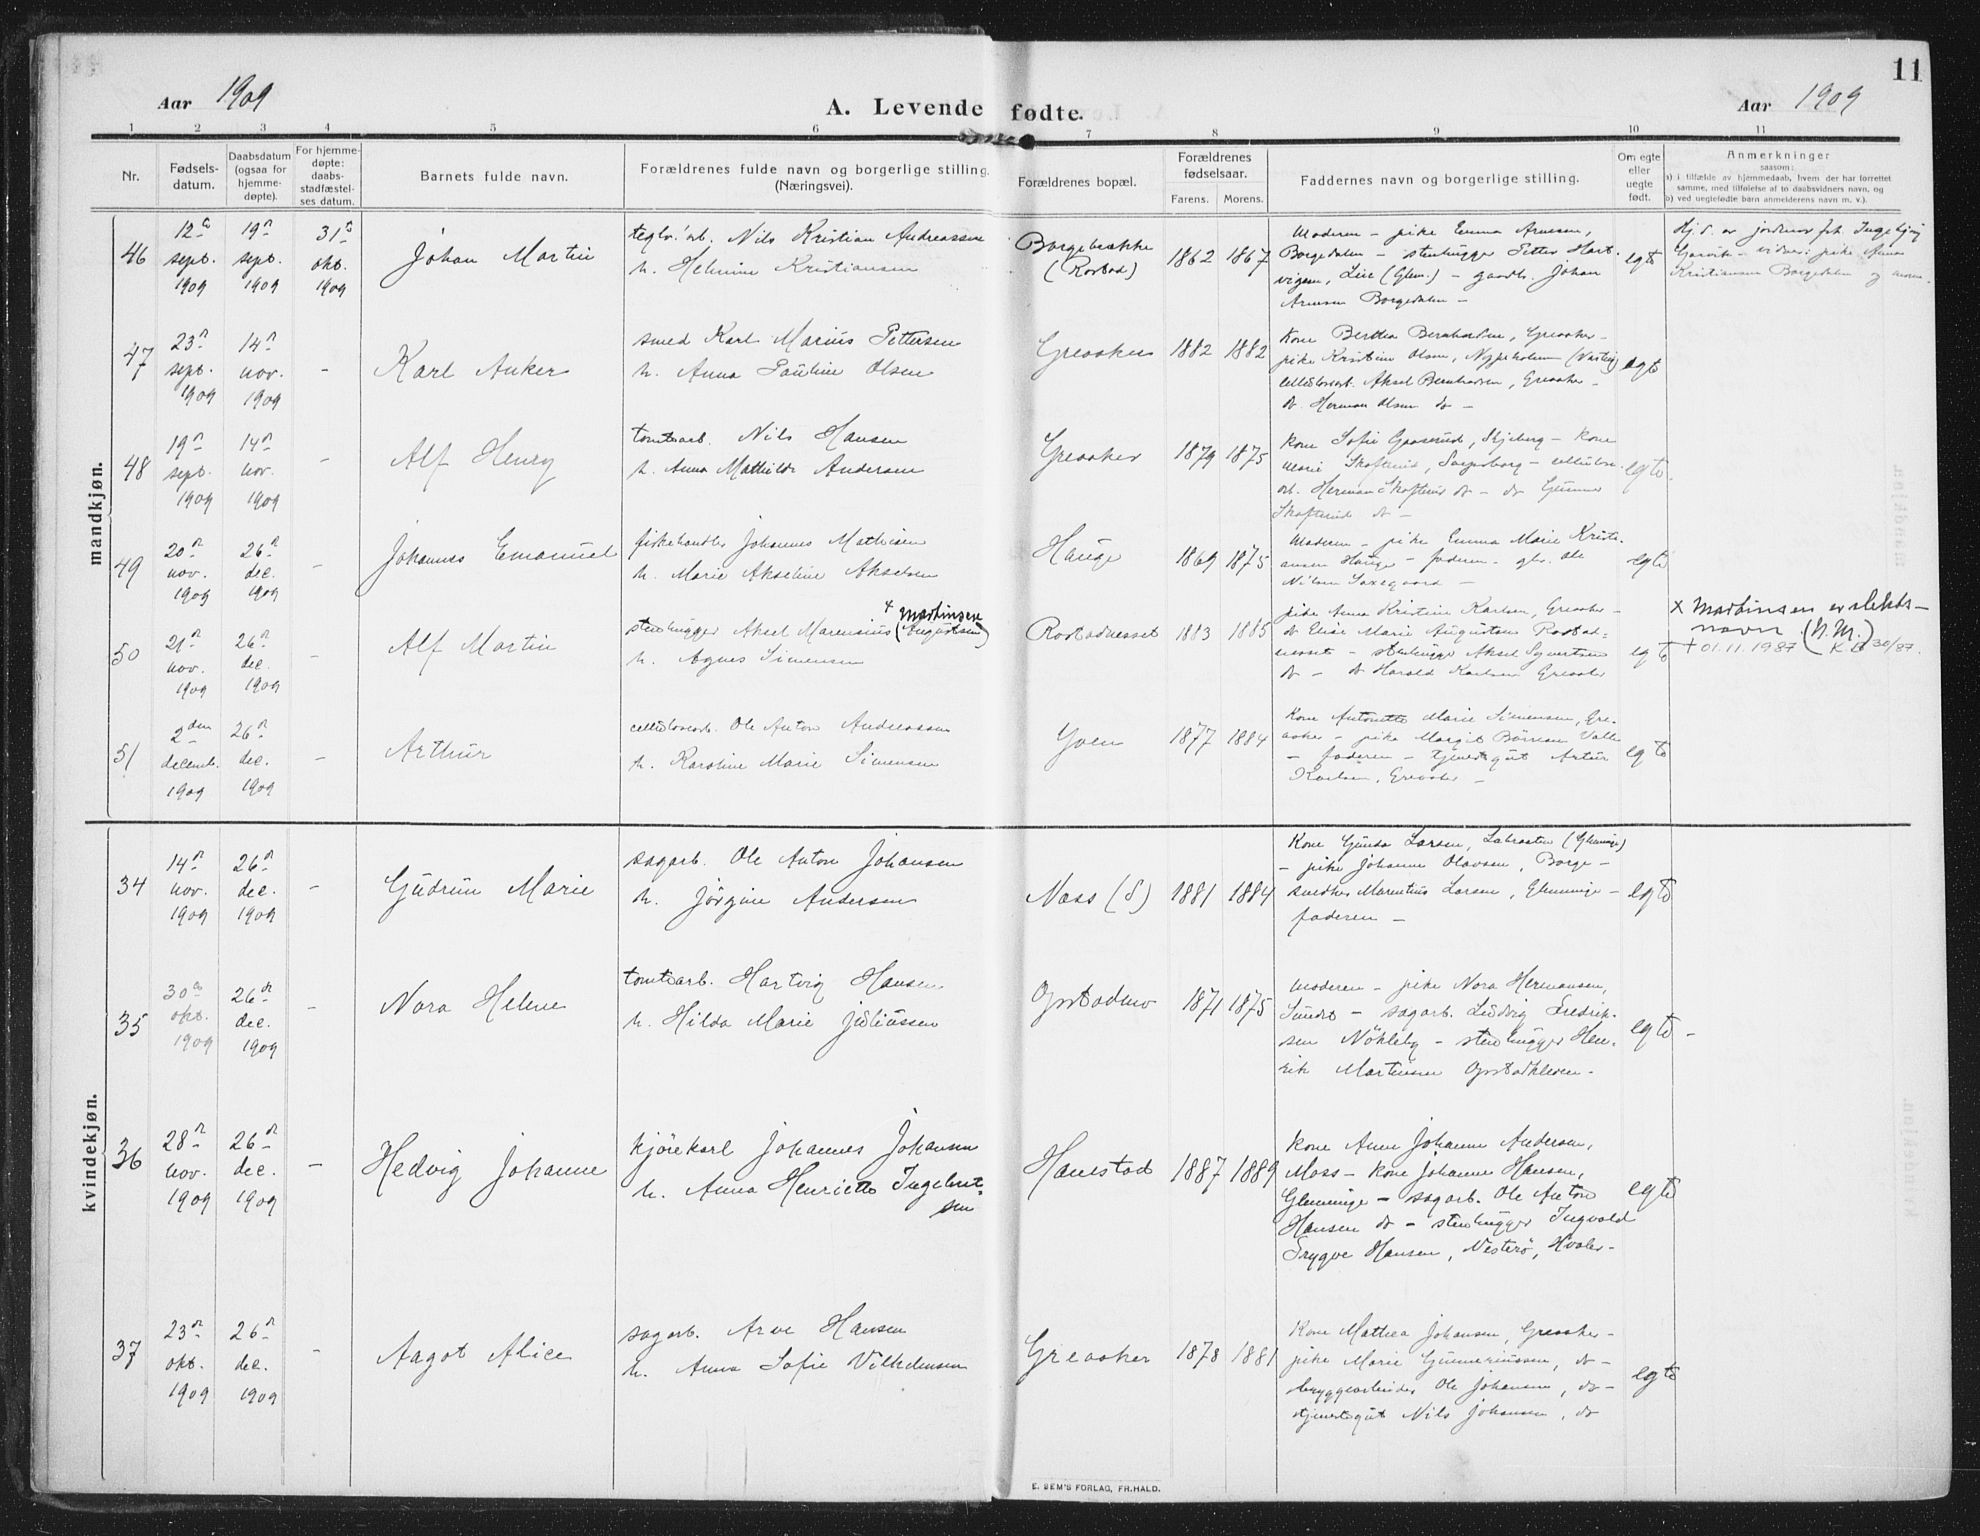 11
Aar 1909
A. Levende fødte.
Aar 1909
1 2 3 4 5 6 7 8 9 10 11
Nr.
Fødsels-
datum.
Daabsdatum
(ogsaa for
hjemme-
døpte).
For hjemme-
døpte:
daabs-
stadfæstel-
ses datum.
Barnets fulde navn.
Forældrenes fulde navn og borgerlige stilling
(Næringsvei).
Forældrenes bopæl.
Forældrenes
fødselsaar.
Farens. Morens.
Faddernes navn og borgerlige stilling.
Om egte
eller
uegte
født.
Anmerkninger
saasom:
a) i tilfælde av hjemmedaab, hvem der har forrettet
samme, med tilføielse af to daabsvidners navn, og
b) ved uegtefødte barn anmelderens navn m. v.).
mandkjøn.
46
12te
sept.
1909
19de
sept.
1909
31te
okt.
1909
Johan Martin
teglv.arb. Nils Kristian Andreassen
h. Helmine Kristiansen
Borgebrække
(Rostad)
1862 1867
Moderen – pike Emma Arnesen,
Borgedalen – stenhugger Petter Hart-
vigsen, Lie (Glem.) – gaardb. Johan
Arnesen Borgedalen –
egte
Hj. d. av jordmor Ingebjørg
Kristiansen Borgedalen og
47
23de
sept.
1909
14de
nov.
1909
–
Karl Anker
smed Karl Marius Pettersen
h. Anna Pauline Olsen
Greaaker
1882 1882
Kone Berthea Bernhardsen, Greaaker
pike Kristine Olsen,
cellulosearb. Aksel Bernhardsen, Greaaker –
do. Herman Olsen do –
egte
48
19de
sept.
1909
14de
nov.
1909
–
Alf Henry
tomtearb. Nils Hansen
h. Anna Mathilde Andersen
Greaaker
1879 1875
Kone Sofie Graserud, Skjeberg – kone
Marie Skofterud, Sarpsborg – cellulose
arb. Herman Skofterud do – do Gunnar
Skofterud do –
egte
49
20de
nov.
1909
26de
dec.
1909
–
Johannes Emanuel
fiskehandler Johannes Mathisen
h. Marie Akseline Akselsen
Hauge
1869 1875
Moderen – pike Emma Marie Kristi-
ansen Hauge – faderen – gbr. Ole
Nilsen Saxegaard –
egte
50
21de
nov.
1909
26de
dec.
1909
–
Alf Martin
x Martinsen
stenhugger Aksel Marensius (Augustsen)
h. Agnes Simensen
Rostadnesset
1883 1885
pike Anna Kristine Karlsen, Greaaker –
do Elise Marie Augustsen Rostad-
nesset – stenhugger Aksel Syvertsen
do – do Harald Karlsen Greaaker
egte
x Martinsen er slekts-
navn (N.M.)
+ 01.11.1987 (K.B. 30/87.
51
2den
decemb.
1909
26de
dec.
1909
–
Arthur
cellulosearb. Ole Anton Andreassen
h. Karoline Marie Simensen
Yven
1877 1884
Kone Antonette Marie Simensen, Gre-
aaker – pike Margit Børresen Valle
– faderen – tjenestegut Artur
Karlsen, Greaaker –
egte
kvindekjøn.
34
14de
nov.
1909
26de
dec.
1909
–
Gudrun Marie
sagarb. Ole Anton Johansen
h. Jørgine Andersen
Næss (S)
1881 1884
Kone Gunda Larsen, Labraaten (Glemminge)
– pike Johanne Olavsen, Borge –
snedker Marentius Larsen, Glemminge –
faderen –
egte
35
30te
okt.
1909
26de
dec.
1909
–
Nora Helene
tomtearb. Hartvig Hansen
h. Hilda Marie Juliussen
Opstadmo
1871 1875
Moderen – pike Nora Hermansen,
Sundet – sagarb. Ludvig Fredrik-
sen Nøkleby – stenhugger Hen-
rik Martinsen Opstadkleven –
egte –
36
28de
nov.
1909
26de
dec.
1909
–
Hedvig Johanne
kjørekarl Johannes Johansen
h. Anna Henriette Ingebret-
sen
Hanestad
1887 1889
Kone Anne Johanne Andersen,
Moss – kone Johanne Hansen,
Glemminge – sagarb. Ole Anton
Hansen do – stenhugger Ingvald
Trygve Hansen, Vesterø, Hvaler –
egte
37
23de
okt.
1909
26de
dec.
1909
–
Aagot Alice
sagarb. Arve Hansen
h. Anna Sofie Vilhelmsen
Greaaker
1878 1881
Kone Mathea Johansen, Greaaker –
pike Marie Gunneriussen, do –
bryggearbeider Ole Johansen, do –
tjenestegut Nils Johansen, do
egte
E. SEM'S FORLAG, FR.HALD.